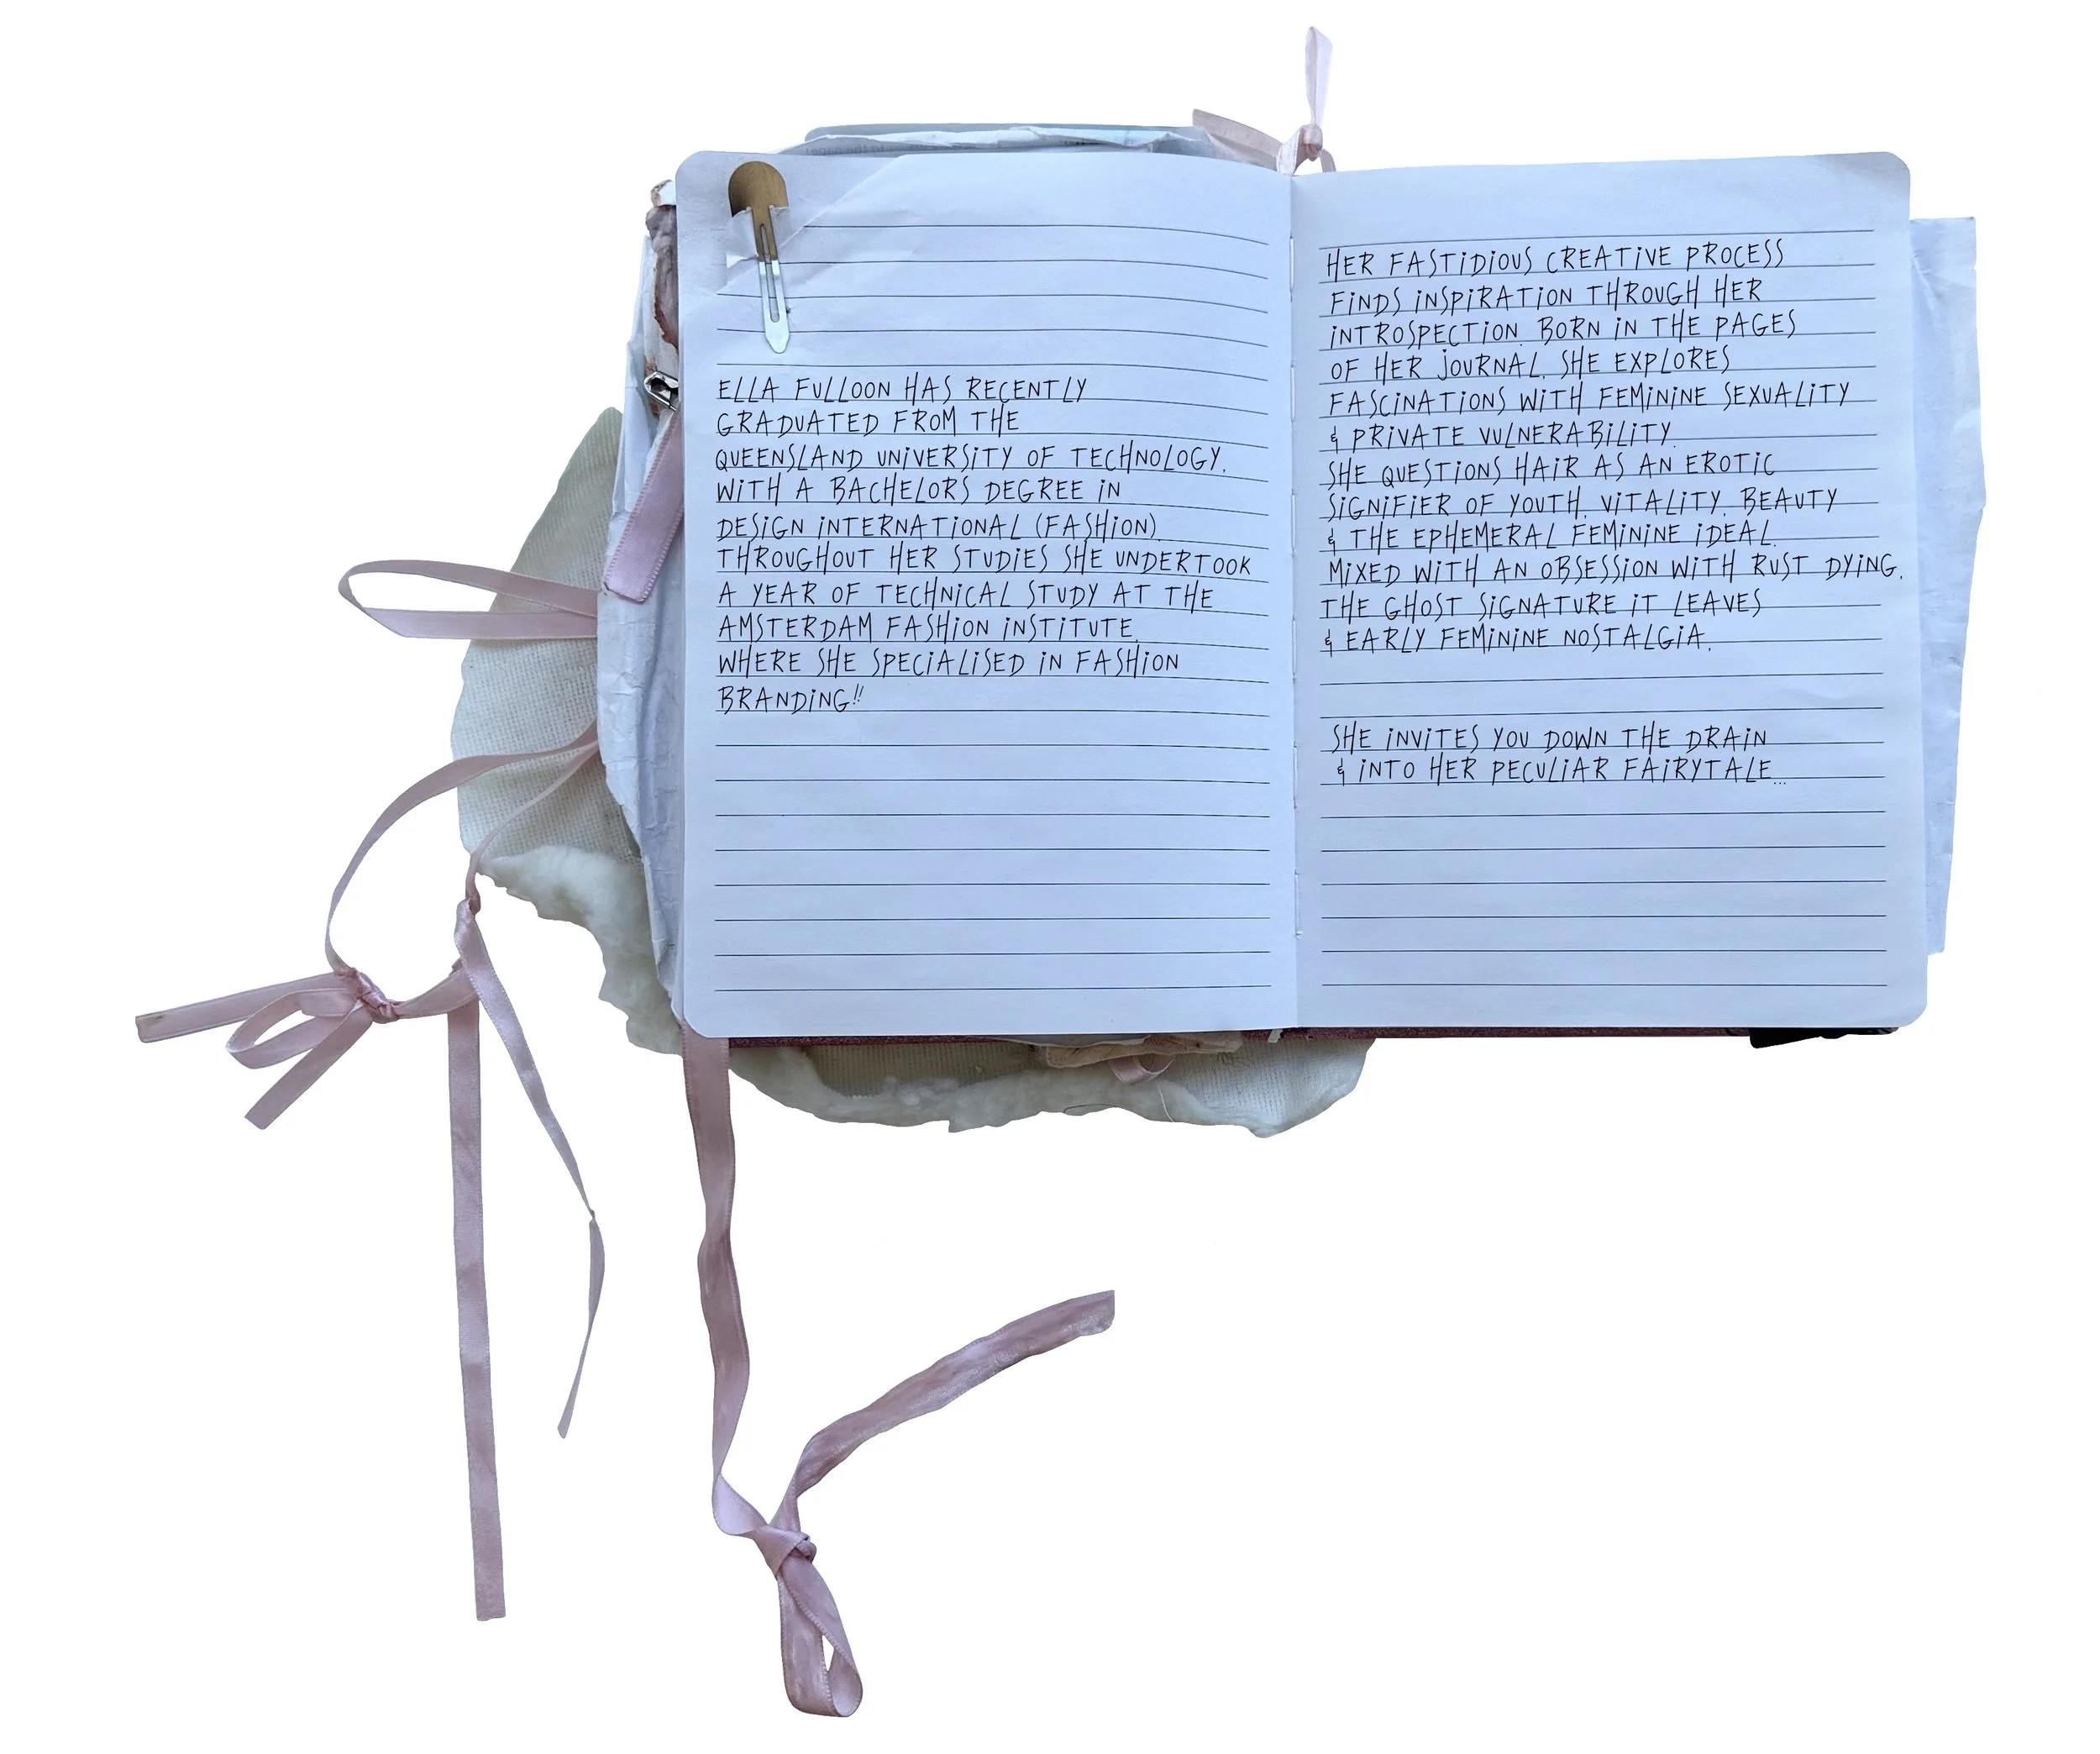 ELLA FULLOON HAS RECENTLY
GRADUATED FROM THE
QUEENSLAND UNIVERSITY OF TECHNOLOGY,
WITH A BACHELORS DEGREE IN
DESIGN INTERNATIONAL (FASHION)
THROUGHOUT HER STUDIES SHE UNDERTOOK
A YEAR OF TECHNICAL STUDY AT THE
AMSTERDAM FASHION INSTITUTE,
WHERE SHE SPECIALISED IN FASHION
BRANDING!!
HER FASTIDIOUS CREATIVE PROCESS
FINDS INSPIRATION THROUGH HER
INTROSPECTION. BORN IN THE PAGES
OF HER JOURNAL, SHE EXPLORES
FASCINATIONS WITH FEMININE SEXUALITY
& PRIVATE VULNERABILITY.
SHE QUESTIONS HAIR AS AN EROTIC
SIGNIFIER OF YOUTH, VITALITY, BEAUTY
& THE EPHEMERAL FEMININE IDEAL.
MIXED WITH AN OBSESSION WITH RUST DYING,
THE GHOST SIGNATURE IT LEAVES
& EARLY FEMININE NOSTALGIA.
SHE INVITES YOU DOWN THE DRAIN
& INTO HER PECULIAR FAIRYTALE...